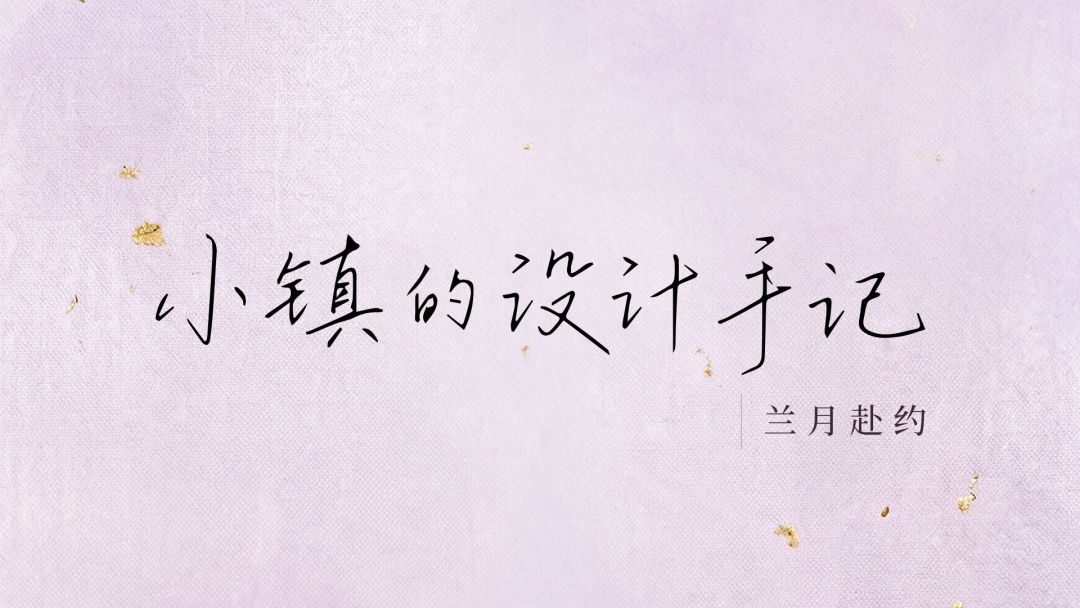 小镇的设计手记
兰月赴约